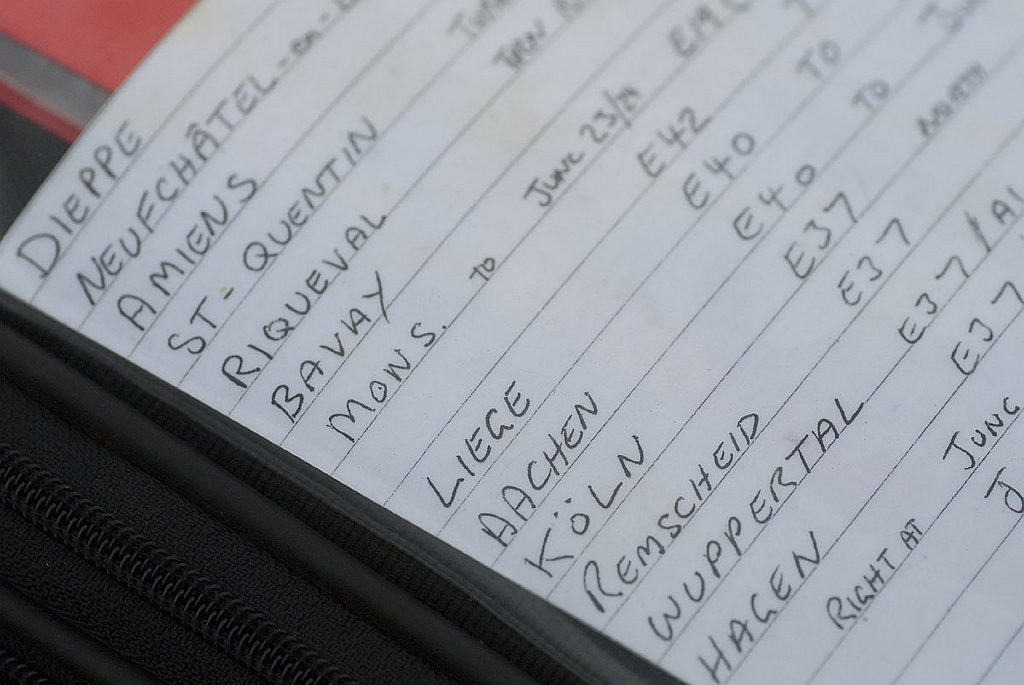 DIEPPE
NEUFCHÂTEL-en-
AMIENS
ST-QUENTIN
RIQUEVAL
BAVAY
MONS. TO JUNC 23/24
E42
LIEGE E40 TO
AACHEN E40 TO
KÖLN E37 NORTH
REMSCHEID E37
WUPPERTAL E37/A1
HAGEN E37
RIGHT AT JUNC